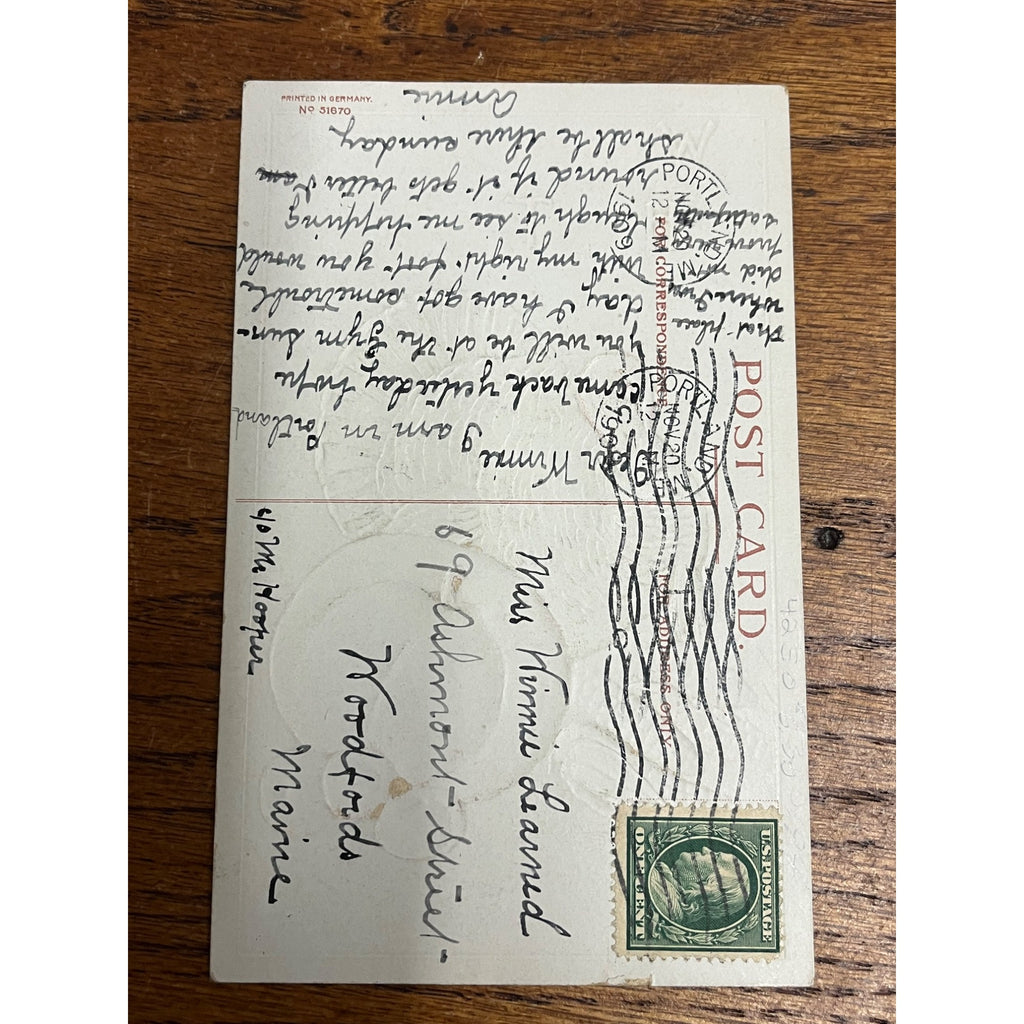 POST CARD.
FOR CORRESPONDENCE
FOR ADDRESS ONLY
PRINTED IN GERMANY.
No 51670
PORTLAND
NOV 20
1909
PORTLAND
NOV 20
1909
U.S. POSTAGE
ONE CENT
that place
where I was
did not
Dear Winnie
I am in Portland
came back yesterday, hope
you will be at the Gym Sun-
day I have got some trouble
with my right foot you would
laugh to see me hopping
round if it gets better I
shall be there sunday
Annie
Miss Winnie Learned
69 Ashmont Street
Woodfords
Maine
c/o Mr Hooper